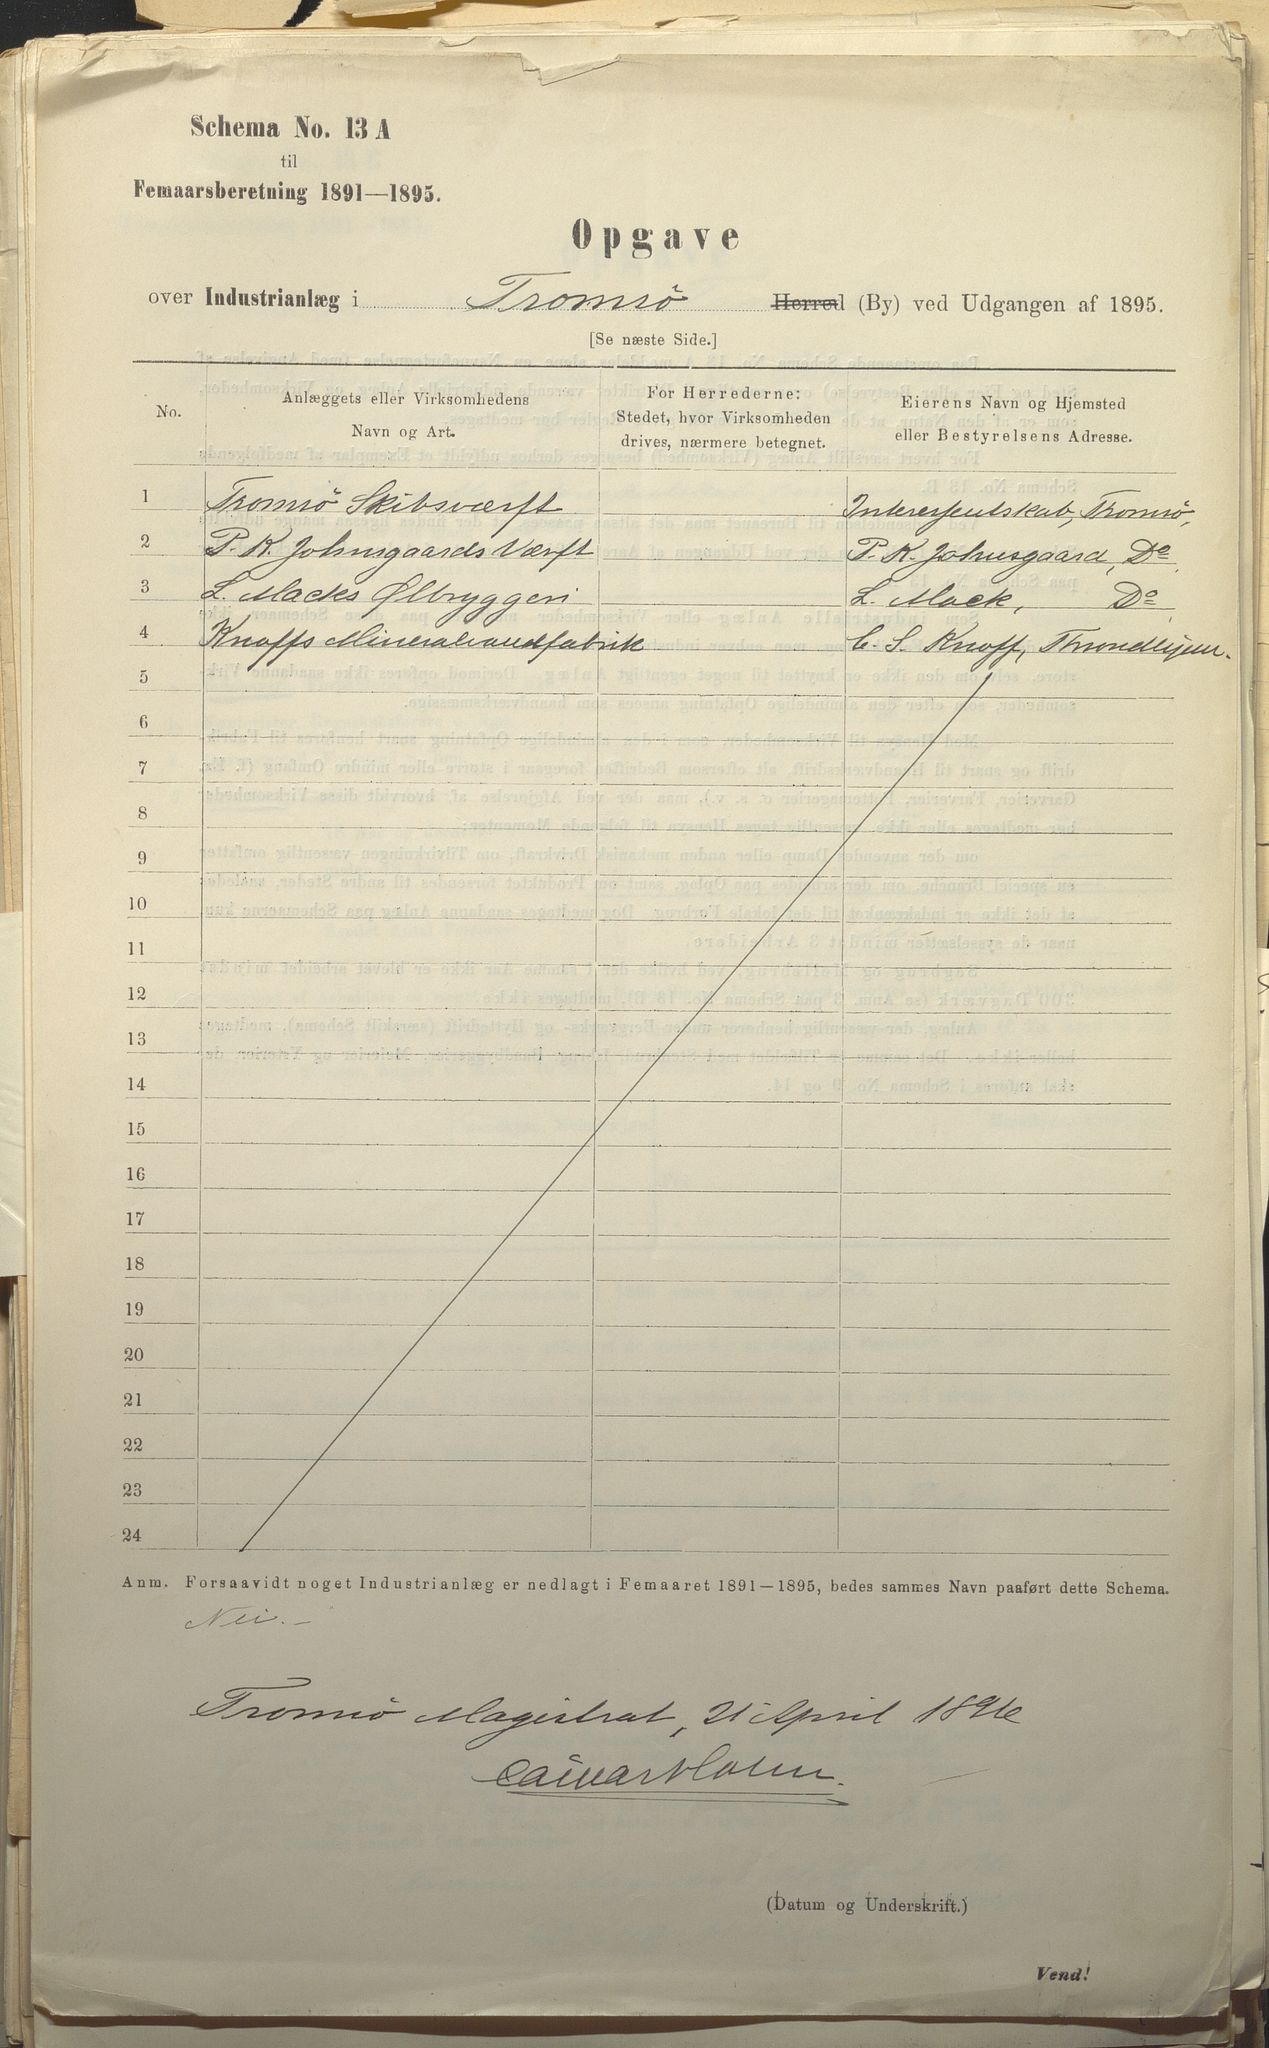 Schema No. 13 A
til
Femaarsberetning 1891—1895.
Opgave
over Industrianlæg i Tromsö Herred (By) ved Udgangen af 1895.
[Se næste Side.]
No.
Anlæggets eller Virksomhedens
Navn og Art.
For Herrederne:
Stedet, hvor Virksomheden
drives, nærmere betegnet.
Eierens Navn og Hjemsted
eller Bestyrelsens Adresse.
1 Tromsö Skibsværft Interessentskab, Tromsö,
2 P. K. Johnsgaards Værft P. K. Johnsgaard, Do,
3 L. Macks Ølbryggeri L. Mack, Do,
4 Knoffs Mineralvandfabrik C. S. Knoff, Throndhjem.
5
6
7
8
9
10
11
12
13
14
15
16
17
18
19
20
21
22
23
24
Anm. Forsaavidt noget Industrianlæg er nedlagt i Femaaret 1891—1895, bedes sammes Navn paaført dette Schema.
Nei. —
Tromsö Magistrat, 21 April 1896
(Datum og Underskrift.)
Vend!